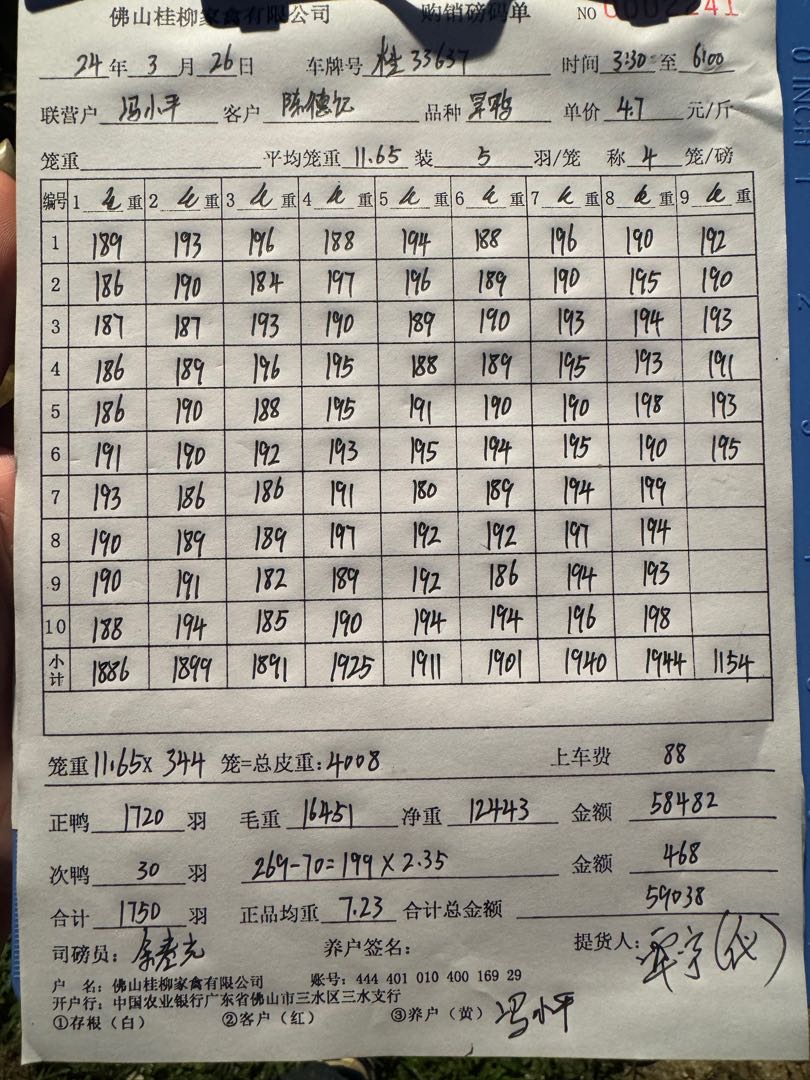 佛山桂柳家禽有限公司 购销磅码单 NO 0002241
24年3月26日 车牌号 桂33637 时间 3:30 至 6:00
联营户 冯小平 客户 陈德记 品种 单价 4.7 元/斤
笼重 平均笼重 11.65 装 5 羽/笼 称 4 笼/磅
编号 1 毛重 2 毛重 3 毛重 4 毛重 5 毛重 6 毛重 7 毛重 8 毛重 9 毛重
1 189 193 196 188 194 188 196 190 192
2 186 190 184 197 196 189 190 195 190
3 187 187 193 190 189 190 193 194 193
4 186 189 196 195 188 189 195 193 191
5 186 190 188 195 191 190 190 198 193
6 191 190 192 193 195 194 195 190 195
7 193 186 186 191 180 189 194 199
8 190 189 189 197 192 192 197 194
9 190 191 182 189 192 186 194 193
10 188 194 185 190 194 194 196 198
小计 1886 1899 1891 1925 1911 1901 1940 1944 1154
笼重 11.65× 344 笼=总皮重: 4008 上车费 88
正鸭 1720 羽 毛重 16451 净重 12443 金额 58482
次鸭 30 羽 269-70=199×2.35 金额 468
合计 1750 羽 正品均重 7.23 合计总金额 59038
司磅员: 养户签名: 提货人:
户 名: 佛山桂柳家禽有限公司 账号: 444 401 010 400 169 29
开户行: 中国农业银行广东省佛山市三水区三水支行
①存根（白） ②客户（红） ③养户（黄） 冯小平